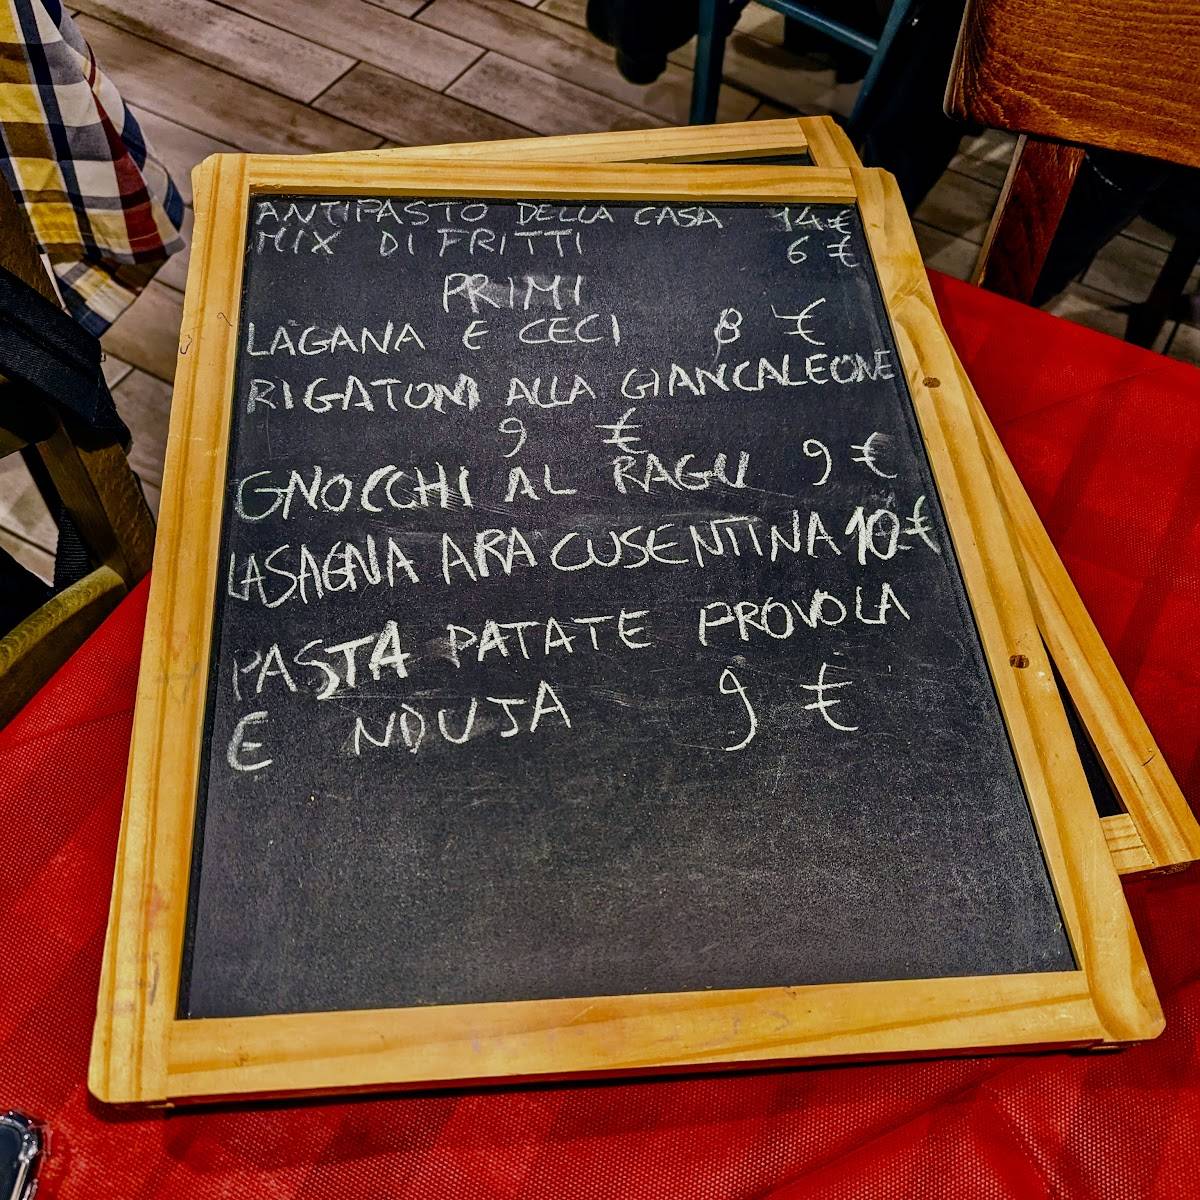 ANTIPASTO DELLA CASA 14 €
MIX DI FRITTI 6 €
PRIMI
LAGANA E CECI 8 €
RIGATONI ALLA GIANCALEONE
9 €
GNOCCHI AL RAGU 9 €
LASAGNA ARA CUSENTINA 10 €
PASTA PATATE PROVOLA
E NDUJA 9 €